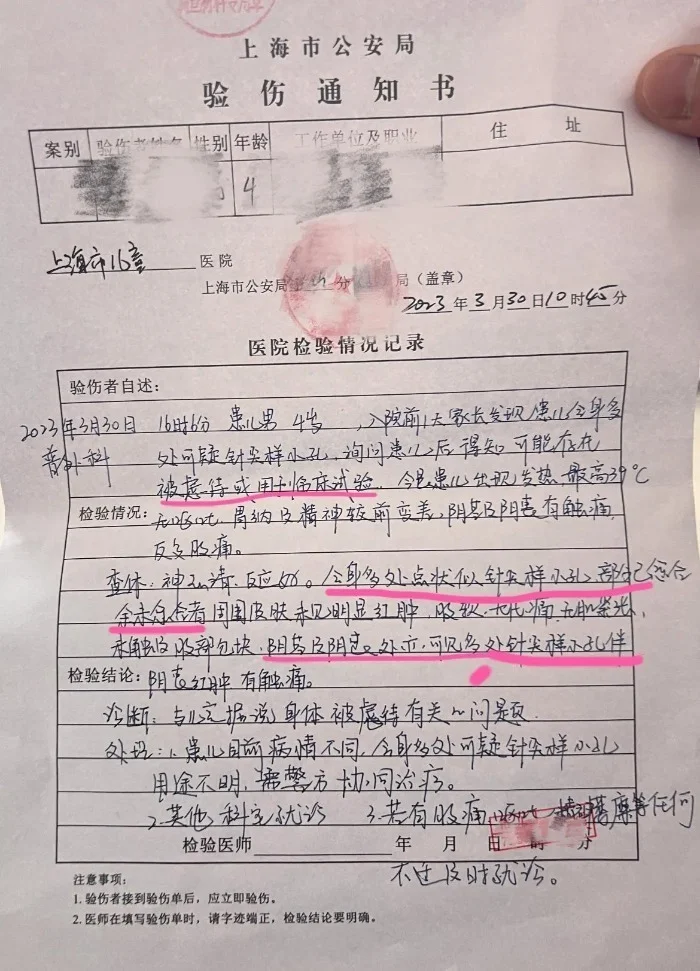 上海市公安局
验伤通知书
案别 验伤者姓名 性别 年龄 工作单位及职业 住址
4
上海市儿童 医院
上海市公安局 分 局（盖章）
2023年3月30日10时45分
医院检验情况记录
验伤者自述：
2023年3月30日 16时6分 患儿男 4岁 ，入院前1天家长发现患儿全身多
普外科 处可疑针尖样小孔，询问患儿后得知可能存在
被虐待或用于临床试验，今晨患儿出现发热，最高39℃
检验情况： 无呕吐，胃纳及精神较前变差，阴茎及阴囊有触痛，
反复腹痛。
查体：神志清，反应好。全身多处点状似针尖样小孔，部分已愈合
余未愈合者周围皮肤未见明显红肿，腹软，无压痛，无肌紧张，
未触及腹部包块，阴茎及阴囊处亦可见多处针尖样小孔伴
检验结论： 阴囊红肿 有触痛。
诊断：与 据说身体被虐待有关的问题
处理：1.患儿目前病情不同，全身多处可疑针尖样小孔
用途不明，需警方协同治疗。
2.其他科室就诊 3.若有腹痛 呕吐 等任何
检验医师 年 月 日 时 分
不适及时就诊。
注意事项：
1.验伤者接到验伤单后，应立即验伤。
2.医师在填写验伤单时，请字迹端正，检验结论要明确。